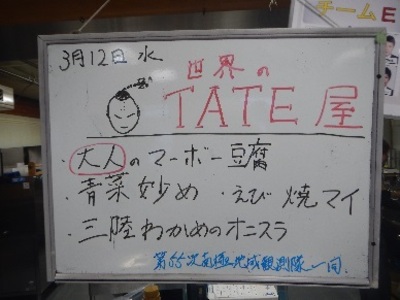 チームE
3月12日 水
世界の
TATE屋
・大人のマーボー豆腐
・青菜妙め ・えび焼マイ
・三陸わかめのオニスラ
第55次南極地域観測隊一同